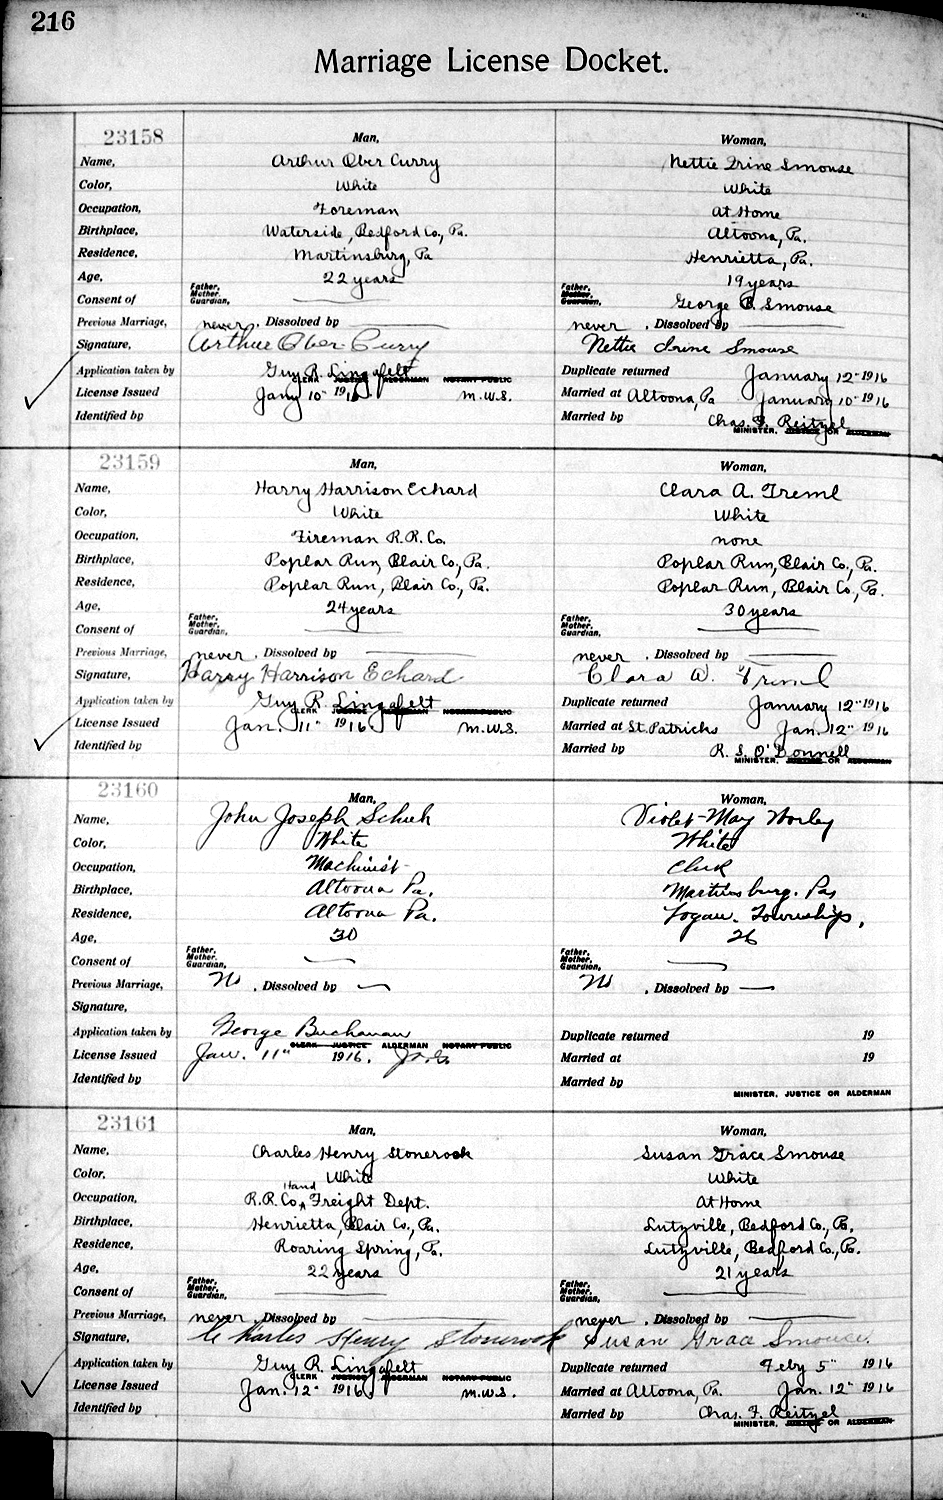 216
Marriage License Docket.
23158 Man, Woman,
Name, Arthur Ober Curry Nettie Irine Smouse
Color, White White
Occupation, Foreman At Home
Birthplace, Waterside, Bedford Co., Pa. Altoona, Pa.
Residence, Martinsburg, Pa Henrietta, Pa.
Age, 22 years 19 years
Consent of Father, Mother, Guardian, Father, Mother, Guardian, George B. Smouse
Previous Marriage, never , Dissolved by never , Dissolved by
Signature, Arthur Ober Curry Nettie Irine Smouse
Application taken by Guy R. Lingafelt Duplicate returned January 12" 1916
CLERK JUSTICE ALDERMAN NOTARY PUBLIC
License Issued Jany 10" 1916 M.W.S. Married at Altoona, Pa January 10" 1916
Identified by Married by Chas. F. Reitzel
MINISTER, JUSTICE OR ALDERMAN
23159 Man, Woman,
Name, Harry Harrison Echard Clara A. Treml
Color, White White
Occupation, Fireman R.R. Co. none
Birthplace, Poplar Run, Blair Co., Pa. Poplar Run, Blair Co., Pa.
Residence, Poplar Run, Blair Co., Pa. Poplar Run, Blair Co., Pa.
Age, 24 years 30 years
Consent of Father, Mother, Guardian, Father, Mother, Guardian,
Previous Marriage, never , Dissolved by never , Dissolved by
Signature, Harry Harrison Echard Clara A. Treml
Application taken by Guy R. Lingafelt Duplicate returned January 12" 1916
CLERK JUSTICE ALDERMAN NOTARY PUBLIC
License Issued Jan. 11" 1916 M.W.S. Married at St. Patricks Jan. 12" 1916
Identified by Married by R. S. O'Donnell
MINISTER, JUSTICE OR ALDERMAN
23160 Man, Woman,
Name, John Joseph Schuh Violet May Worley
Color, White White
Occupation, Machinist Clerk
Birthplace, Altoona Pa. Martinsburg. Pa
Residence, Altoona Pa. Logan. Township,
Age, 30 26
Consent of Father, Mother, Guardian, Father, Mother, Guardian,
Previous Marriage, No , Dissolved by No , Dissolved by
Signature,
Application taken by George Buchanan Duplicate returned 19
CLERK JUSTICE ALDERMAN NOTARY PUBLIC
License Issued Jan. 11" 1916. Married at 19
Identified by Married by
MINISTER, JUSTICE OR ALDERMAN
23161 Man, Woman,
Name, Charles Henry Stonerook Susan Grace Smouse
Color, White White
Occupation, R.R. Co. Hand Freight Dept. At Home
Birthplace, Henrietta, Blair Co., Pa. Lutzville, Bedford Co., Pa.
Residence, Roaring Spring, Pa. Lutzville, Bedford Co., Pa.
Age, 22 years 21 years
Consent of Father, Mother, Guardian, Father, Mother, Guardian,
Previous Marriage, never , Dissolved by never , Dissolved by
Signature, Charles Henry Stonerook Susan Grace Smouse.
Application taken by Guy R. Lingafelt Duplicate returned Feby 5" 1916
CLERK JUSTICE ALDERMAN NOTARY PUBLIC
License Issued Jan. 12" 1916 M.W.S. Married at Altoona, Pa. Jan. 12" 1916
Identified by Married by Chas. F. Reitzel
MINISTER, JUSTICE OR ALDERMAN